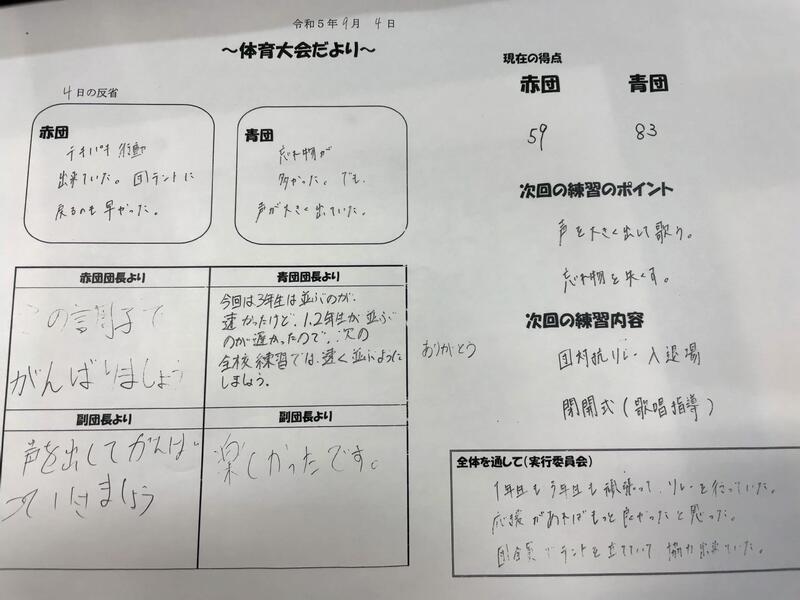 令和5年9月4日
～体育大会だより～
4日の反省
赤団
テキパキ行動
出来ていた。団テントに
戻るのも早かった。
青団
忘れ物が
多かった。でも、
声が大きく出ていた。
赤団団長より
この調子で
がんばりましょう
青団団長より
今回は3年生は並ぶのが、
速かったけど、1、2年生が並ぶ
のが遅かったので、次の
全校練習では、速く並ぶように
しましょう。
副団長より
声を出してがんば
っていきましょう
副団長より
楽しかったです。
ありがとう
現在の得点
赤団 青団
59 83
次回の練習のポイント
声を大きく出して歌う。
忘れ物を失くす。
次回の練習内容
団対抗リレー 入退場
閉開式(歌唱指導)
全体を通して(実行委員会)
1年生も3年生も頑張って、リレーを行っていた。
応援があればもっと良かったと思った。
団全員でテントを立てていて協力出来ていた。